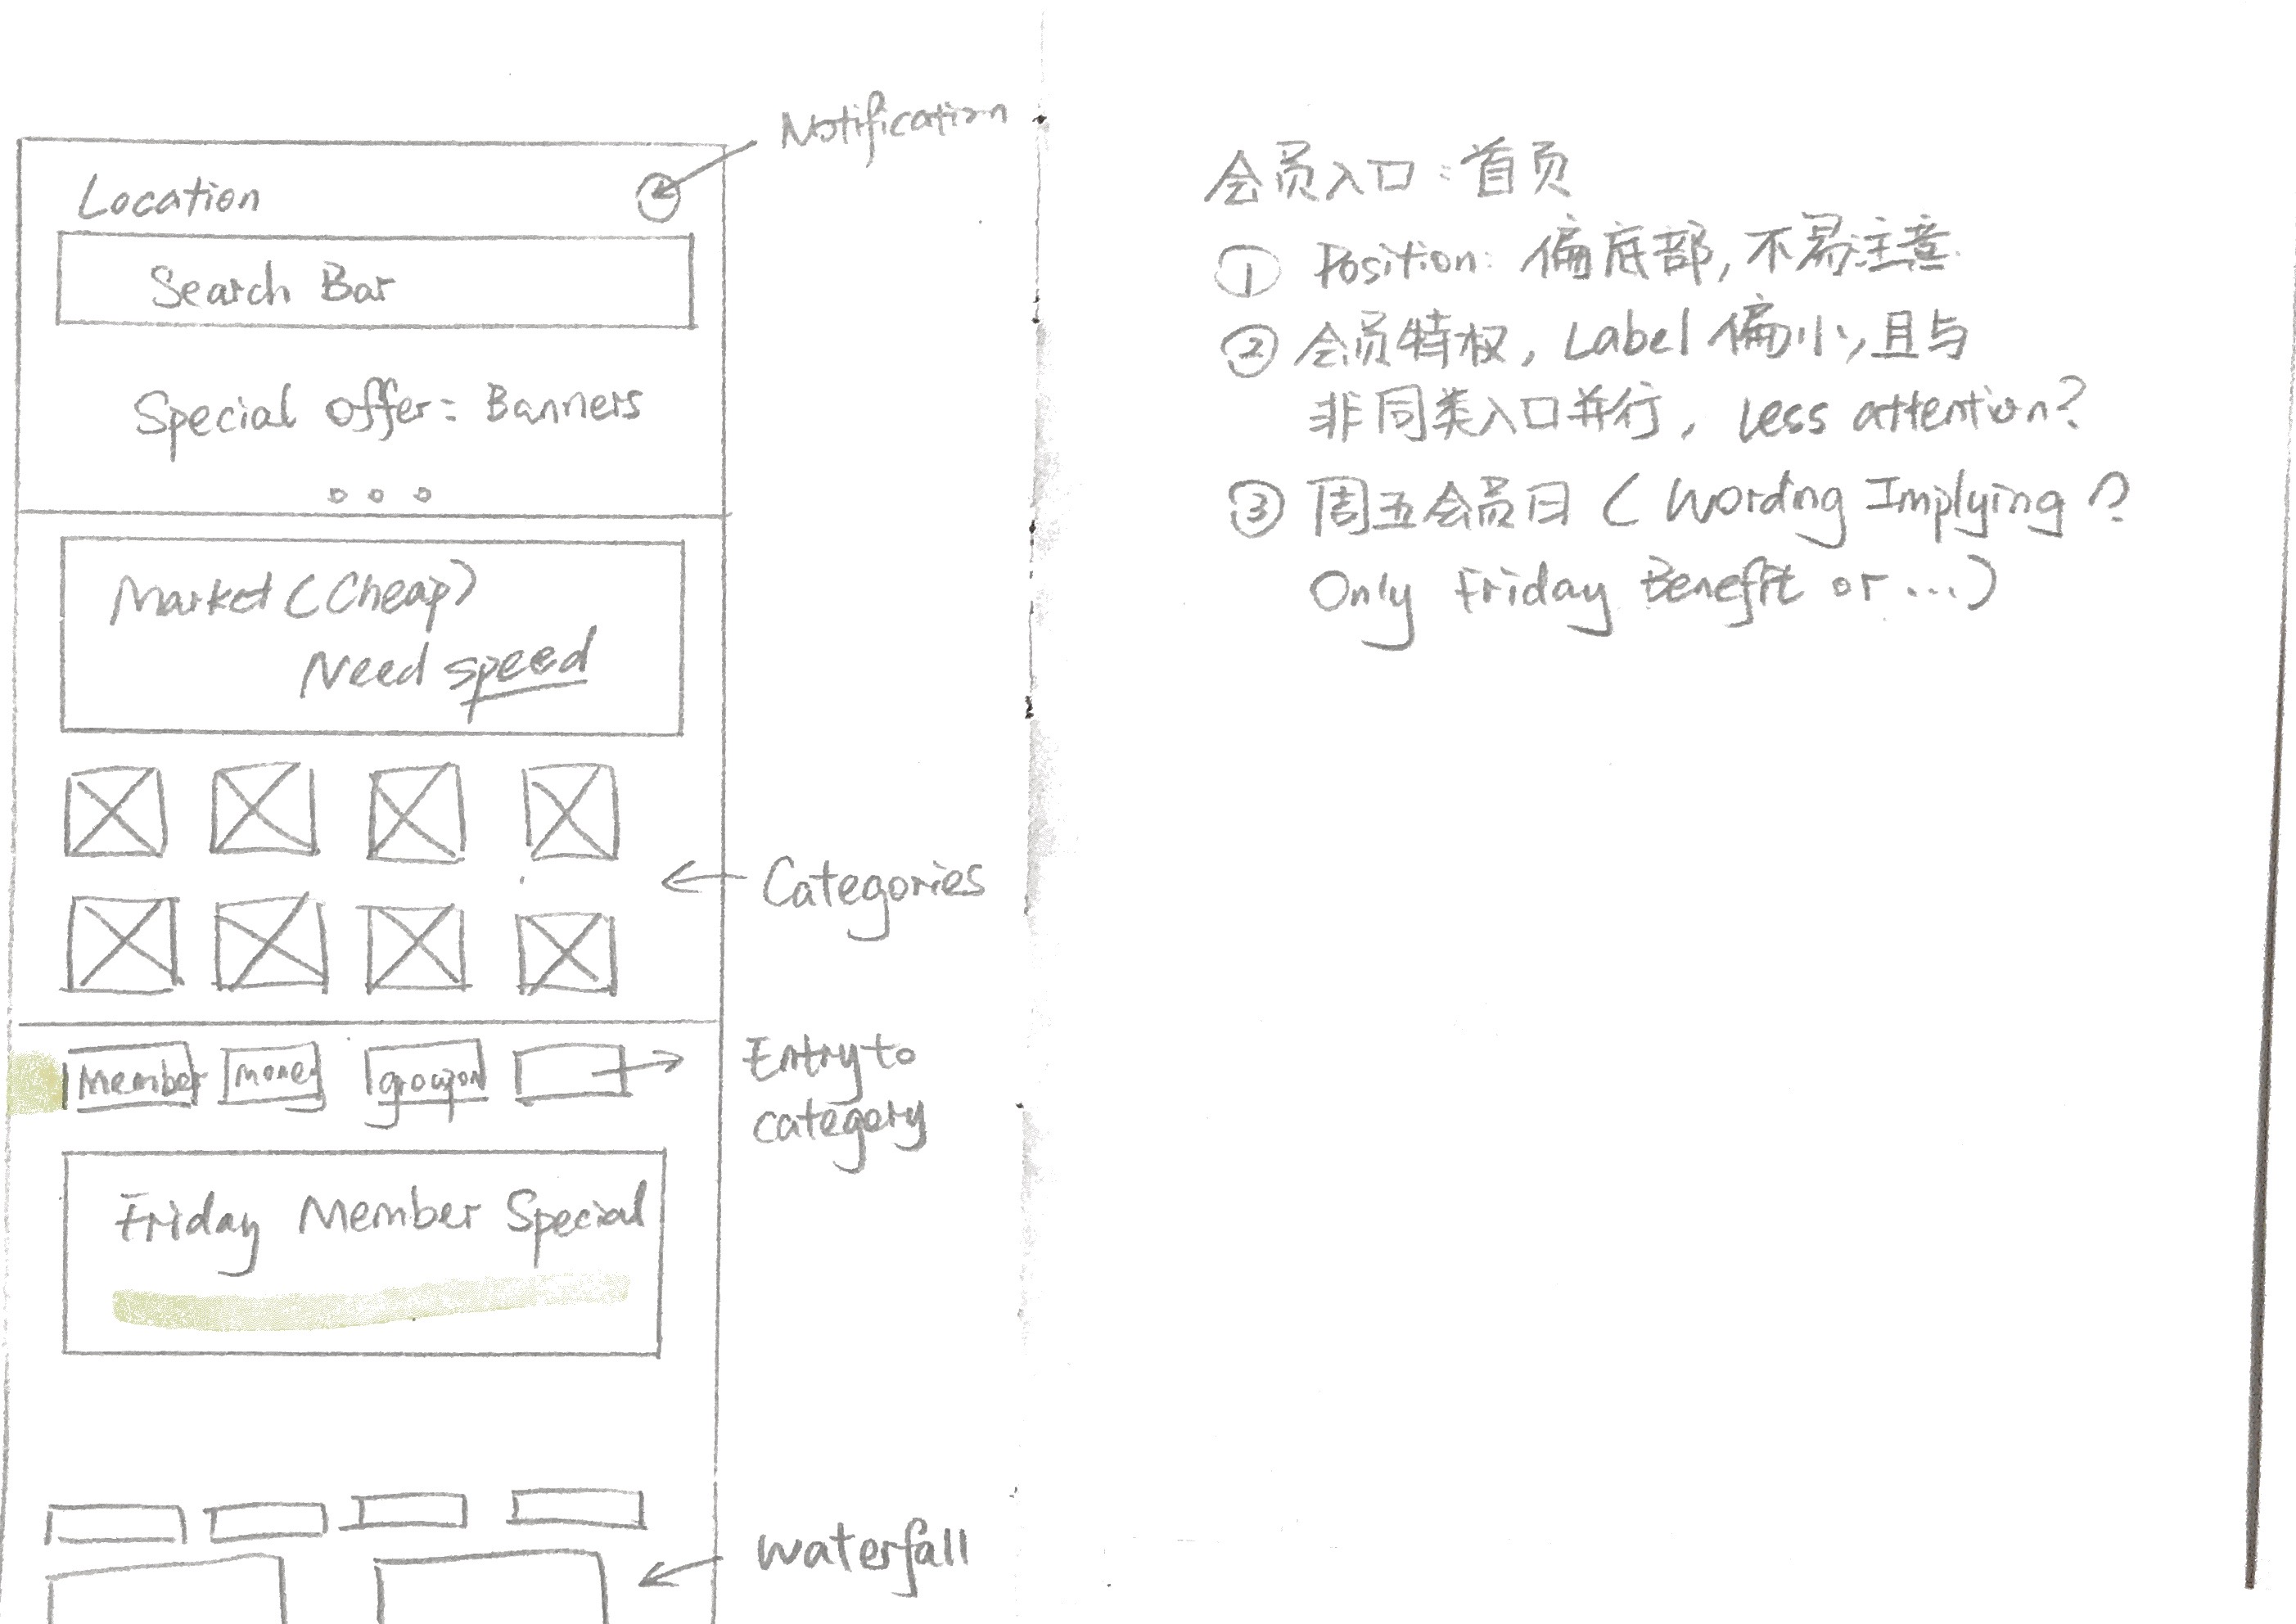 Notification
Location
Search Bar
Special Offer: Banners
Market (Cheap)
Need speed
Categories
Member money groupon
Entry to
category
Friday Member Special
waterfall
会员入口:首页
① Position: 偏底部,不易注意.
② 会员特权, Label 偏小,且与
非同类入口并行, Less attention?
③ 周五会员日 ( Wording Implying ?
Only Friday Benefit or ...)